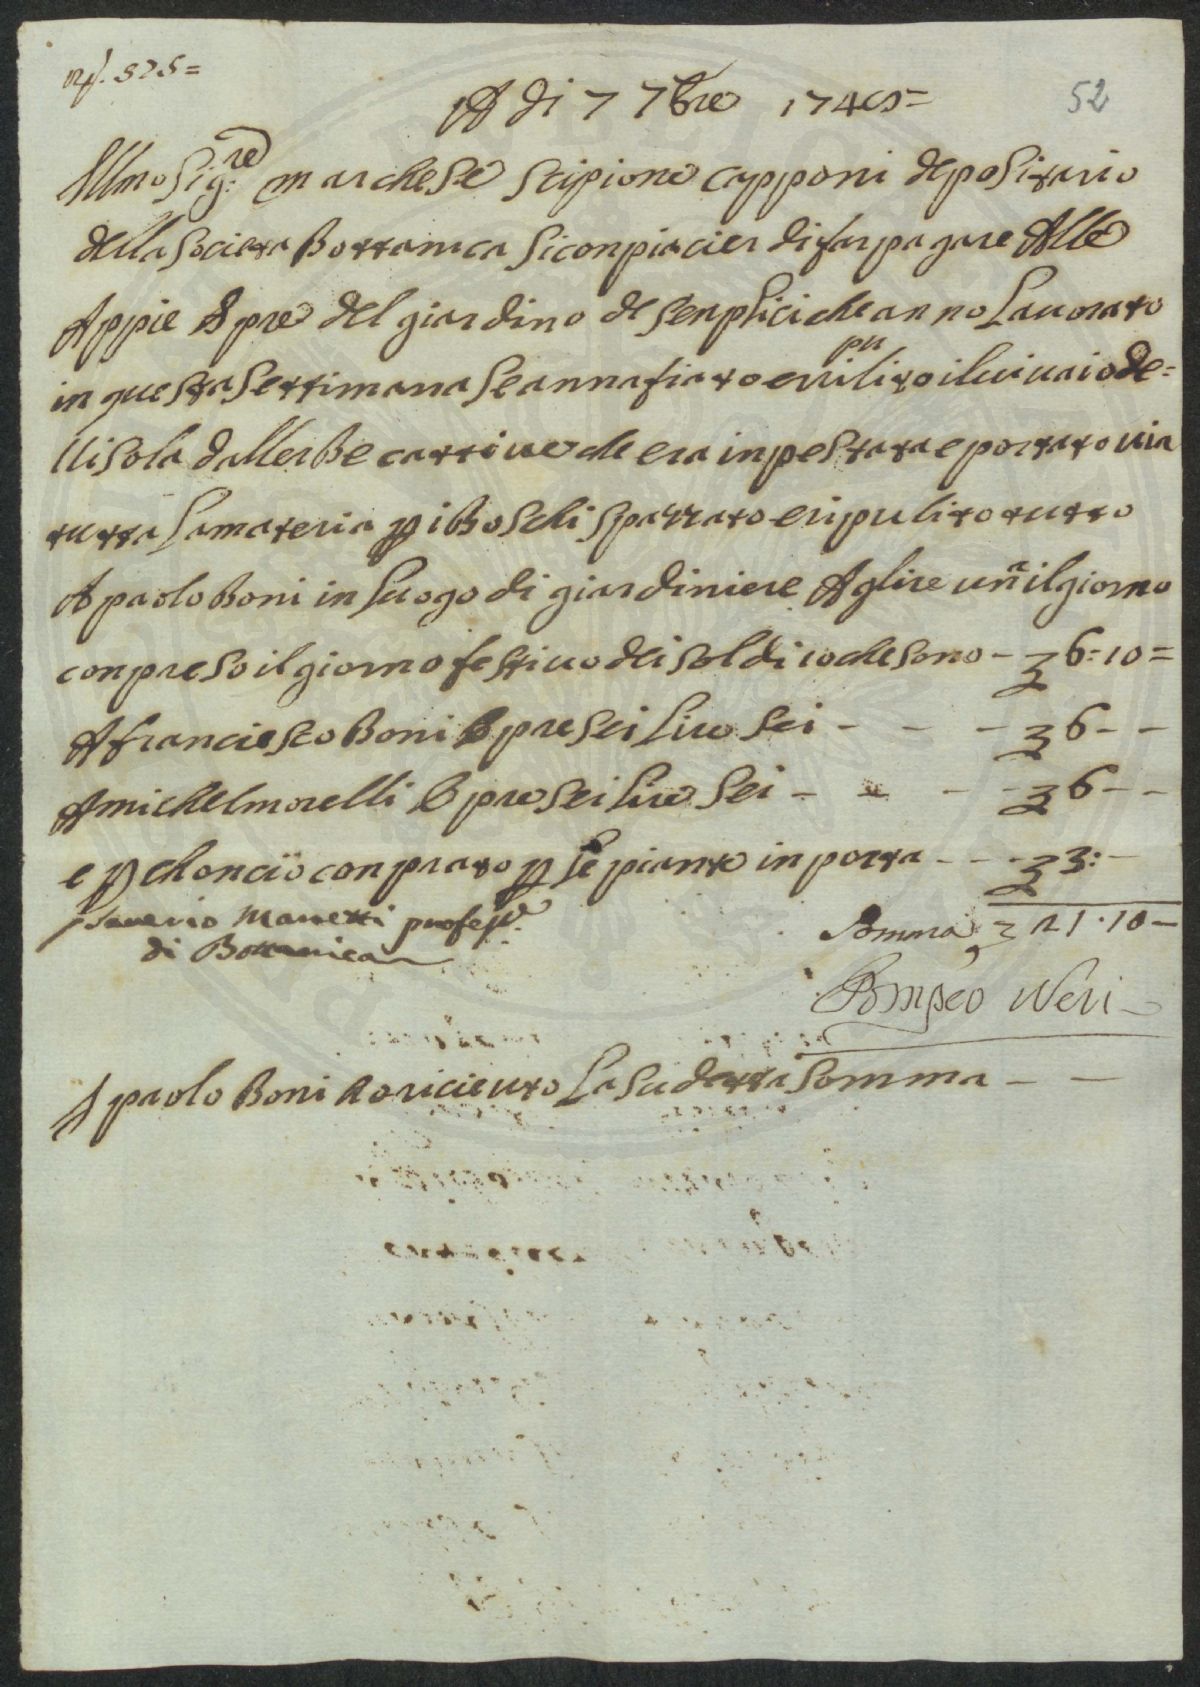 52
A di 7 7bre 174
Illmo Sig:re marchese Scipione capponi depositario
della Societa Bottanica si conpiacier di far pagare Alle
Appie Opre del giardino de senplici che anno Lauorato
in questa settimana se annafiato e ripulito il uiuaio de=
llisola dallerbe cattiue che era inpestata e portato uia
tutta La materia p i Boschi spazzato e ripulito tutto
A paolo Boni in Luogo di giardiniere A glire una il giorno
conpreso il giorno festiuo dei soldi 10 che sono - 6:10=
A franciesco Boni O pre sei Lire Sei - - - 6 - -
A michel morelli O pre sei Lire Sei - - - 6 - -
e p choncio conprato p Le piante in porta - - - 3: -
Sauerio Manetti profess.e
di Bottanica
Somma 21.10 -
Pompeo Neri
Io paolo Boni o riceuto La sudetta Somma - -